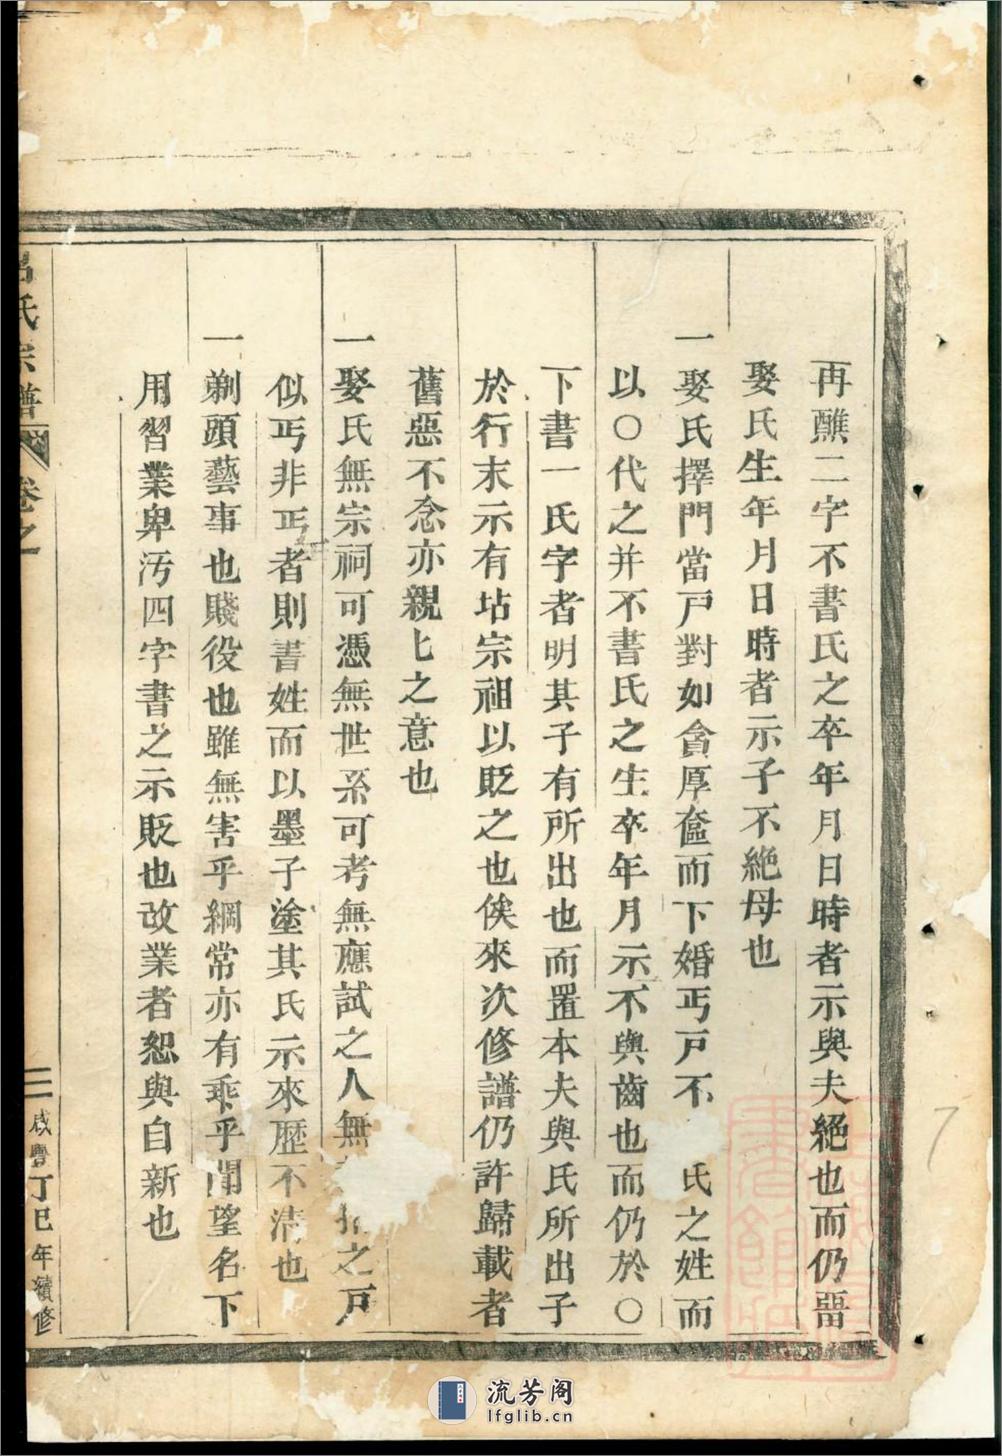 再醮二字不書氏之卒年月日時者示與夫絕也而仍畱
娶氏生年月日時者示子不絕母也
一娶氏擇門當戸對如貪厚奩而下婚丐戸不 氏之姓而
以〇代之并不書氏之生卒年月示不與齒也而仍於〇
下書一氏字者明其子有所出也而置本夫與氏所出子
於行末示有玷宗祖以貶之也俟來次修譜仍許歸載者
舊惡不念亦親匕之意也
一娶氏無宗祠可憑無世系可考無應試之人無 之戸
似丐非丐者則書姓而以墨子塗其氏示來歷不清也
一剃頭藝事也賤役也雖無害乎綱常亦有乖乎聞望名下
用習業卑汚四字書之示貶也改業者恕與自新也
呂氏宗譜 卷之
三 咸豐丁巳年續修
流芳阁
lfglib.cn